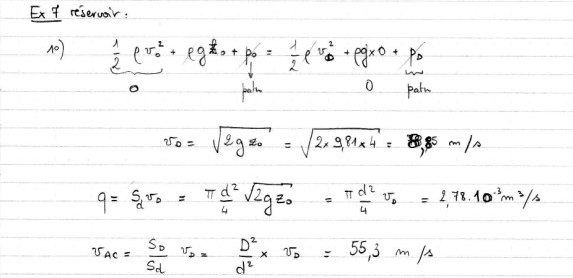 Ex 7 réservoir :
1°) 1/2 ρ v₀² + ρg z₀ + p₀ = 1/2 ρ v_D² + ρg×0 + p_D
0 patm 0 patm
v_D = √(2g z₀) = √(2×9,81×4) = 8,85 m/s
q = S_d v_D = π d²/4 √(2g z₀) = π d²/4 v_D = 2,78.10⁻³ m³/s
v_AC = S_D/S_d v_D = D²/d² × v_D = 55,3 m/s